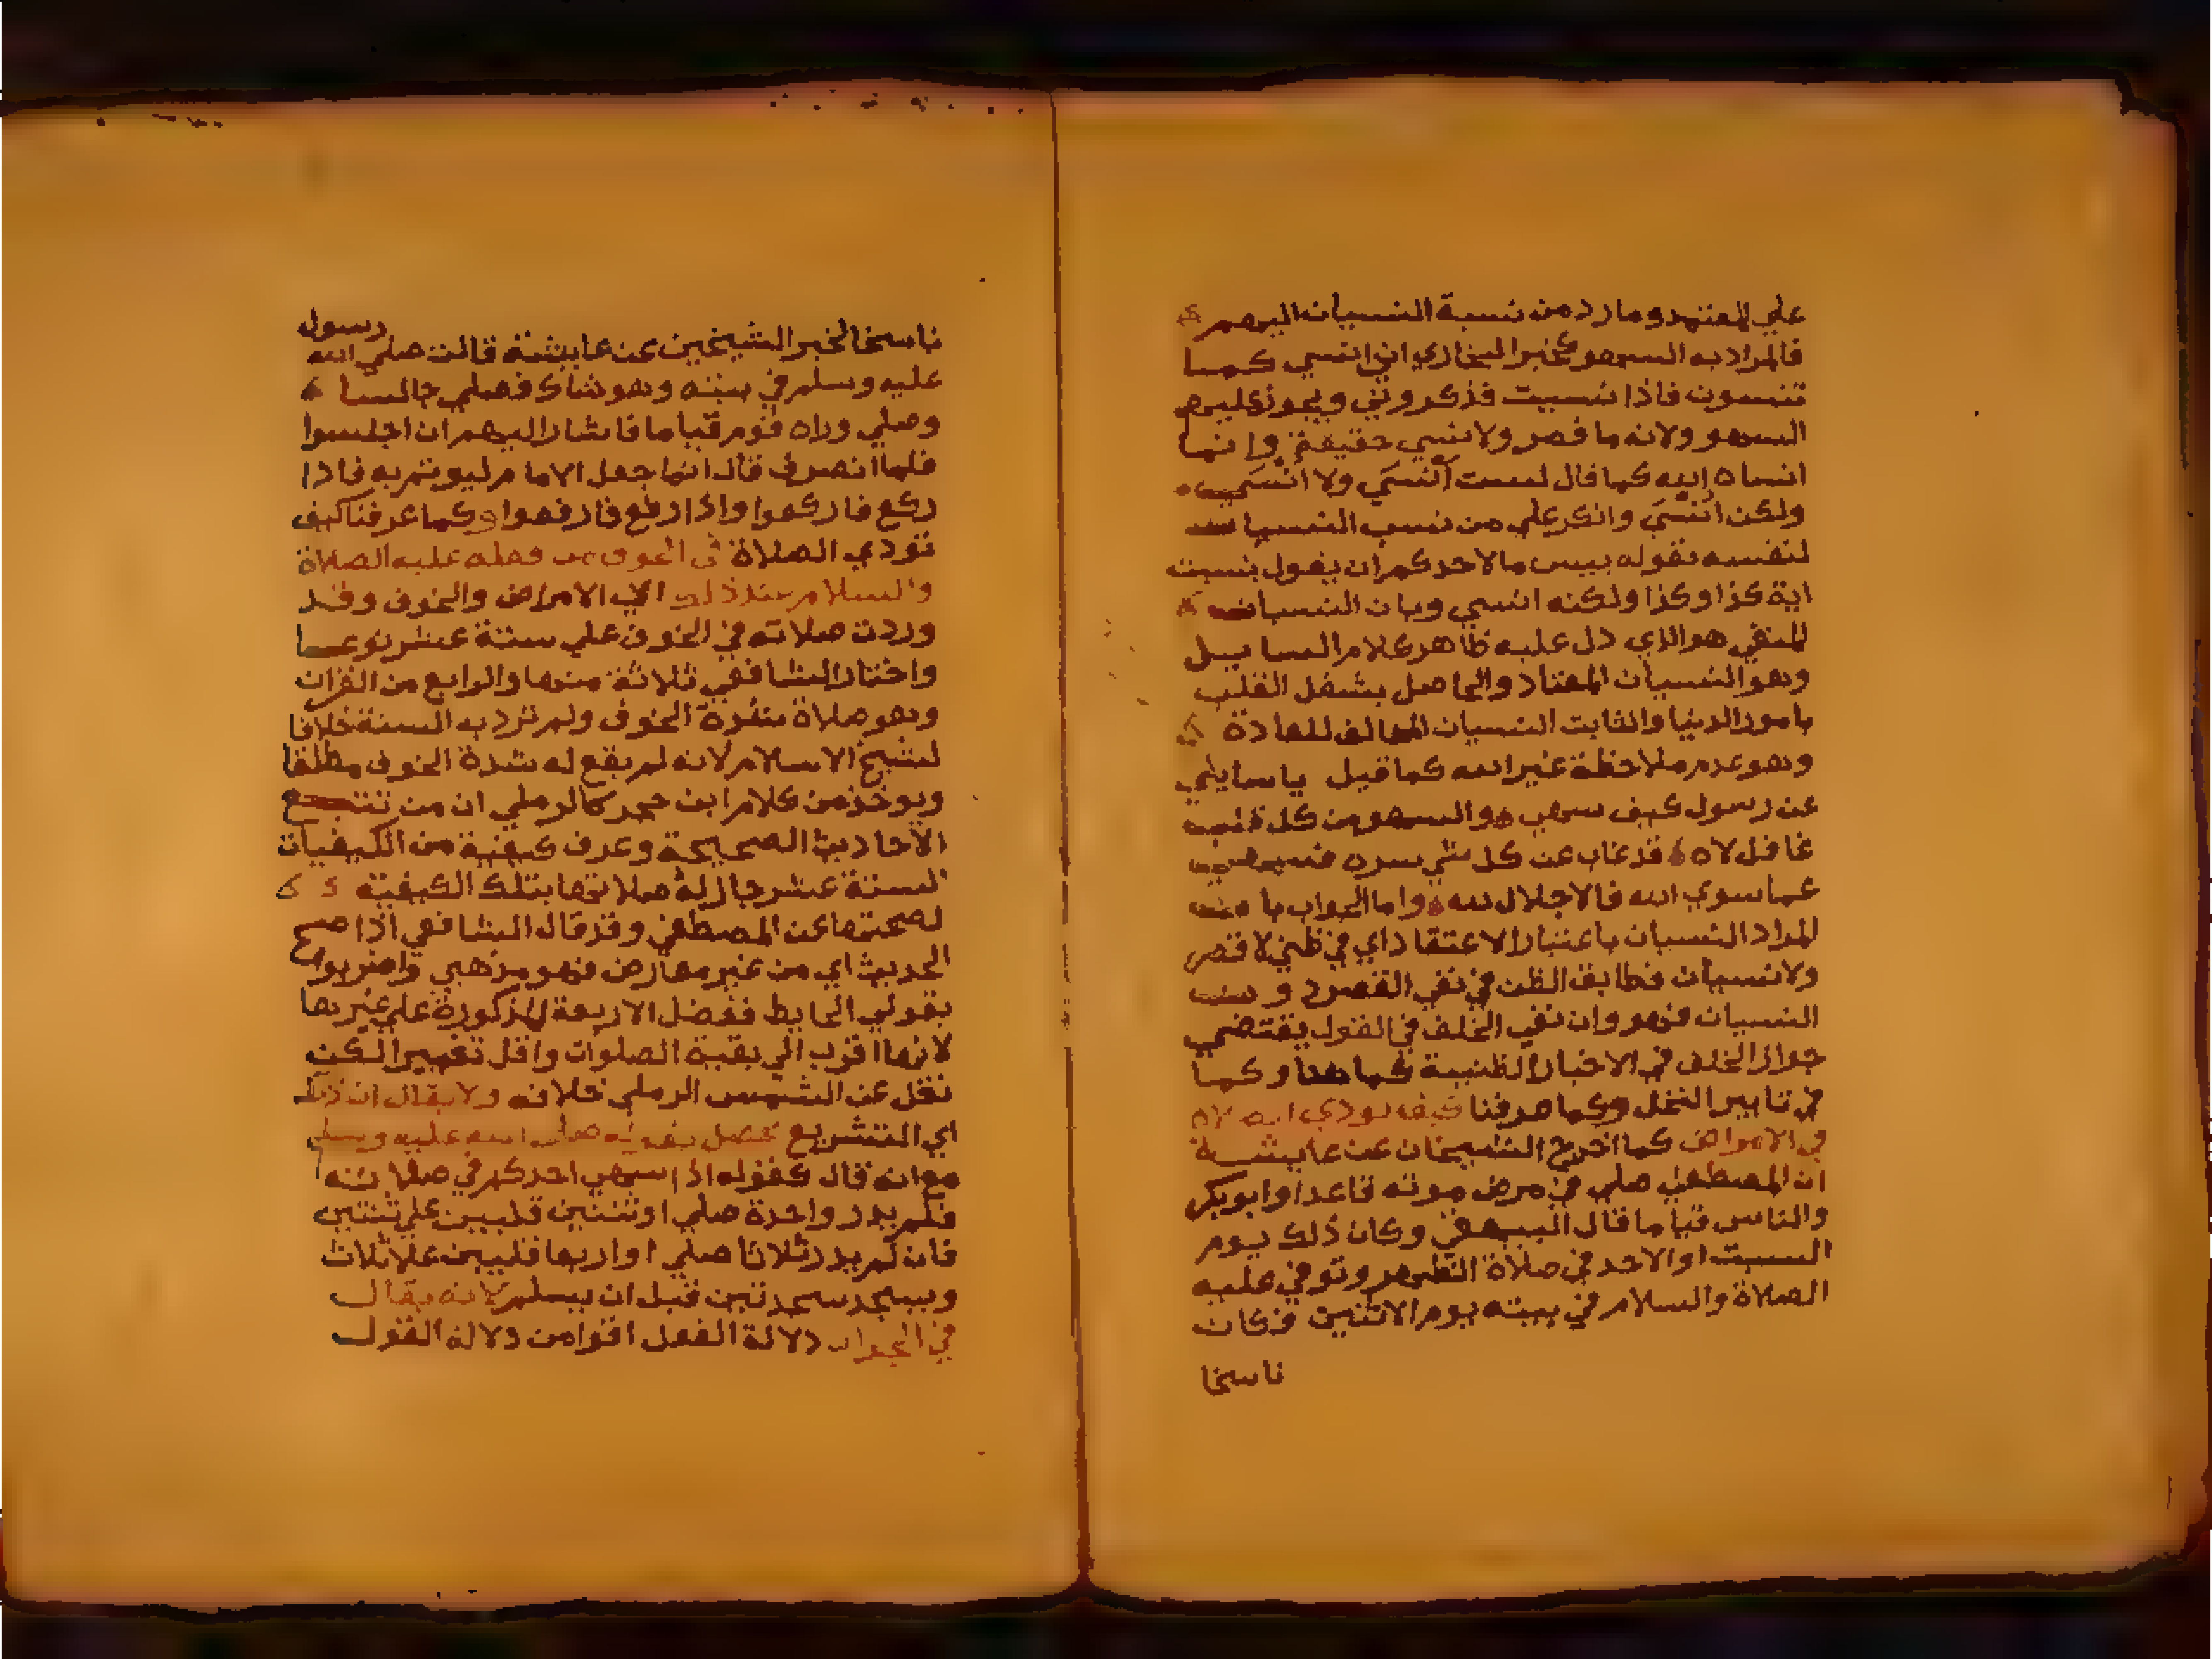 علي المعتمد وما رد من نسبة النسيان اليهم
فالمراد به السهو كخبر البخاري اني انسي كما
تنسون فاذا نسيت فذكروني ويجوز عليهم
السهو ولانه ما قصر ولا نسي حقيقة وانما
انساه الله كما قال لست أنسَي ولا انسَي
ولكن أنسَي وانكر علي من نسب النسيان
لنفسه بقوله بيس ما لاحدكم ان يقول نسيت
اية كذا وكذا ولكنه انسي وبان النسيان
المنفي هو الذي دل عليه ظاهر كلام السايل
وهو النسيان المعتاد والحاصل بشغل القلب
بامور الدنيا والثابت النسيان المخالف للعادة
وهو عدم ملاحظة غير الله كما قيل يا سايلي
عن رسول كيف سهي والسهو من كل قلب
غافل لاه قد غاب عن كل شي سره فسهي
عما سوي الله فالاجلال لله واما الجواب بان
المراد النسيان باعتبار الاعتقاد اي في ظني لا قصر
ولا نسيان فطابق الظن في نفي القصر د و ست
النسيان فهو وان نفي الخلف في القول يقتضي
جواز الخلف في الاخبار الظنية كما هنا وكما
في تابير النخل وكما عرفنا كيف نودي الصلاة
في الامراض كما اخرج الشيخان عن عايشة
ان المصطفي صلي في مرض موته قاعدا وابو بكر
والناس قياما قال البيهقي وكان ذلك يوم
السبت او الاحد في صلاة الظهر وتوفي عليه
الصلاة والسلام في بيته يوم الاثنين فكان
ناسخا
ناسخا لخبر الشيخين عن عايشة قالت صلي رسول الله
عليه وسلم في بيته وهو شاك فصلي جالسا
وصلي وراه قوم قياما فاشار اليهم ان اجلسوا
فلما انصرف قال انما جعل الامام ليوتم به فاذا
ركع فاركعوا واذا رفع فارفعوا وكما عرفنا كيف
نودي الصلاة في الخوف من فعله عليه الصلاة
والسلام عند ذلك اي الامراض والخوف وقد
وردت صلاته في الخوف علي ستة عشر نوعا
واختار الشافعي ثلاثة منها والرابع من القران
وهو صلاة شدة الخوف ولم ترد به السنة خلافا
لشيخ الاسلام لانه لم يقع له شدة الخوف مطلقا
ويوخذ من كلام ابن حجر كالرملي ان من تتبع
الاحاديث الصحيحة وعرف كيفية من الكيفيات
الستة عشر جاز له صلاتها بتلك الكيفية
لصحتها عن المصطفي وقد قال الشافعي اذا صح
الحديث اي من غير معارض فهو مذهبي واضربوا
بقولي الحايط ففضل الاربعة المذكورة علي غيرها
لانها اقرب الي بقية الصلوات واقل تغييرا لكن
نقل عن الشمس الرملي خلافه ولا يقال ان ذلك
اي التشريع يحصل بقوله صلي الله عليه وسلم
مع انه قال كقوله اذا سهي احدكم في صلاته
فلم يدر واحدة صلي او ثنتين فليبن علي ثنتين
فان لم يدر ثلاثا صلي او اربعا فليبن علا ثلاث
ويسجد سجدتين قبل ان يسلم لانه يقال
في الجواب دلالة الفعل اقوا من دلالة القول